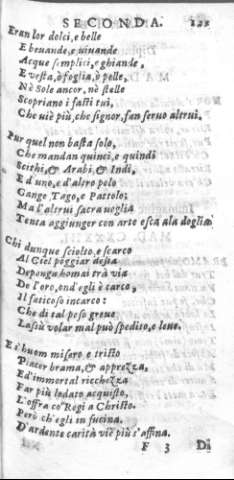 SECONDA.
Eran lor dolci, e belle
E beuande, e viuande
Acque semplici, e ghiande,
E vesta, ò foglia, ò pelle,
Nè Sole ancor, nè stelle
Scopriano i fasti rui,
Che uiè più, che signor, fan seruo altrui.
Pur quel non basta solo,
Che mandan quinci, e quindi
Scithi, & Arabi, & Indi,
E d'uno, e d'altro polo
Gange Tago, e Pattolo;
Ma l'altrui sacra uoglia
Tenta aggiunger con arte esca ala doglia
Chi dunque sciolto, e scarco
Al Ciel poggiar desia
Deponga homai tra via
De l'oro, ond'egli è carco,
Il faticoso incarco:
Che di tal peso greue
Lasù volar mal può spedito, e leue.
E s'huom misero e tristo
Piacer brama, & apprezza,
Ed immortal ricchezza
Far più lodato acquisto,
L'offra co' Regi a Christo.
Però ch'egli in fucina.
D'ardente carità vie più s'affina.
F 3 Di